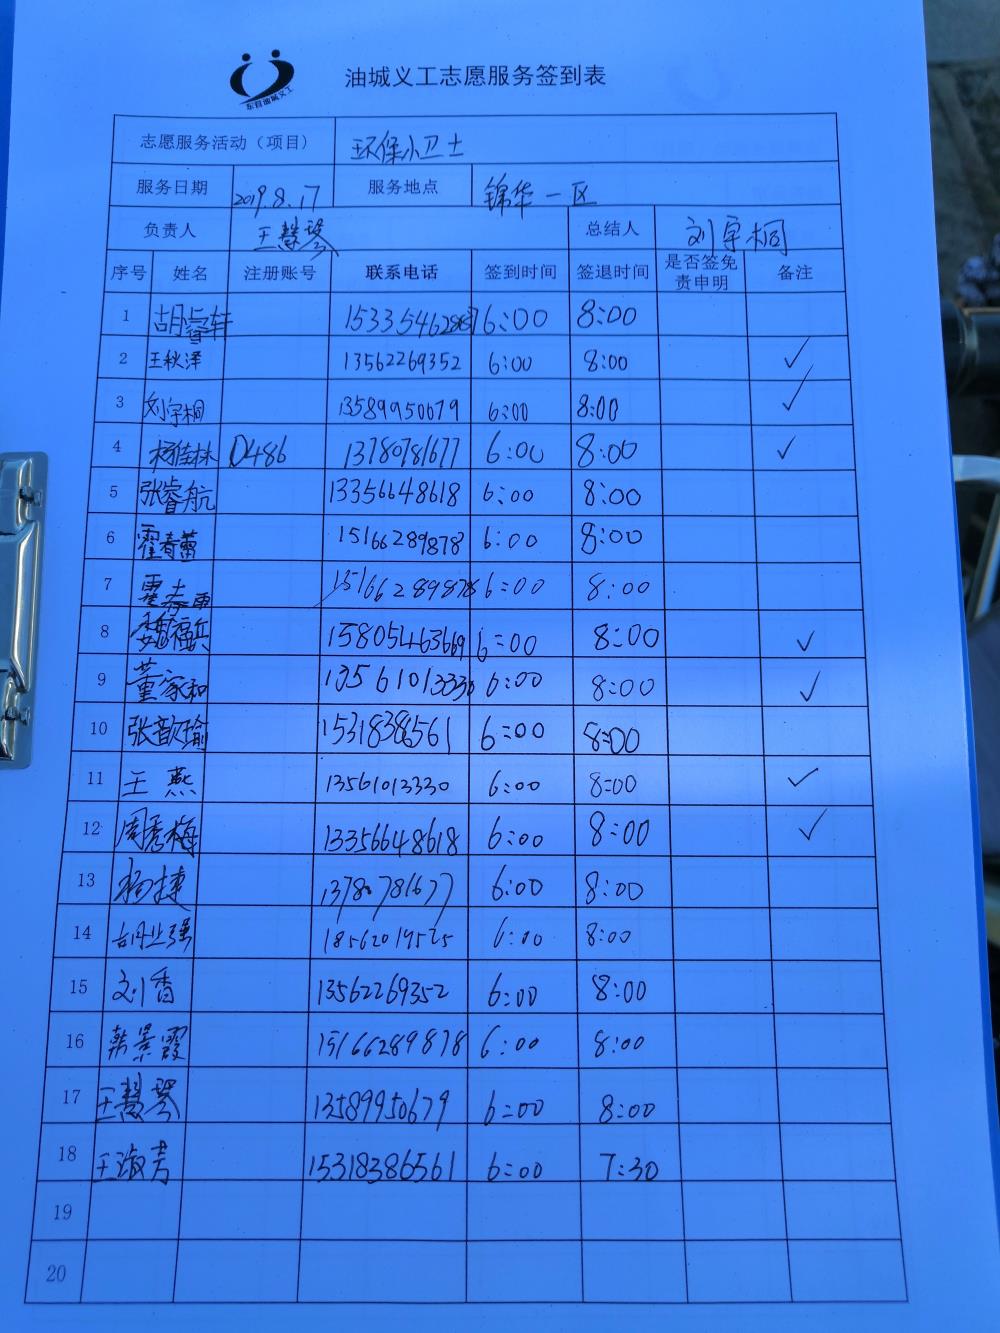 东营油城义工
油城义工志愿服务签到表
志愿服务活动（项目） 环保小卫士
服务日期 2019.8.17 服务地点 锦华一区
负责人 王慧琴 总结人 刘宇桐
序号 姓名 注册账号 联系电话 签到时间 签退时间 是否签免责申明 备注
1 胡睿轩 6:00 8:00
2 王秋泽 13562269352 6:00 8:00 ✓
3 刘宇桐 13589950679 6:00 8:00 ✓
4 杨佳林 D486 13780781677 6:00 8:00 ✓
5 张睿航 13356648618 6:00 8:00
6 霍春蕾 15166289878 6:00 8:00
7 霍春雨 15166289878 6:00 8:00
8 15805463669 6:00 8:00 ✓
9 董家和 13561013330 6:00 8:00 ✓
10 张歆瑜 15318386561 6:00 8:00
11 王燕 13561013330 6:00 8:00 ✓
12 周秀梅 13356648618 6:00 8:00 ✓
13 杨捷 13780781677 6:00 8:00
14 胡业强 18562019525 6:00 8:00
15 刘香 13562269352 6:00 8:00
16 韩景霞 15166289878 6:00 8:00
17 王慧琴 13589950679 6:00 8:00
18 王淑芳 15318386561 6:00 7:30
19
20